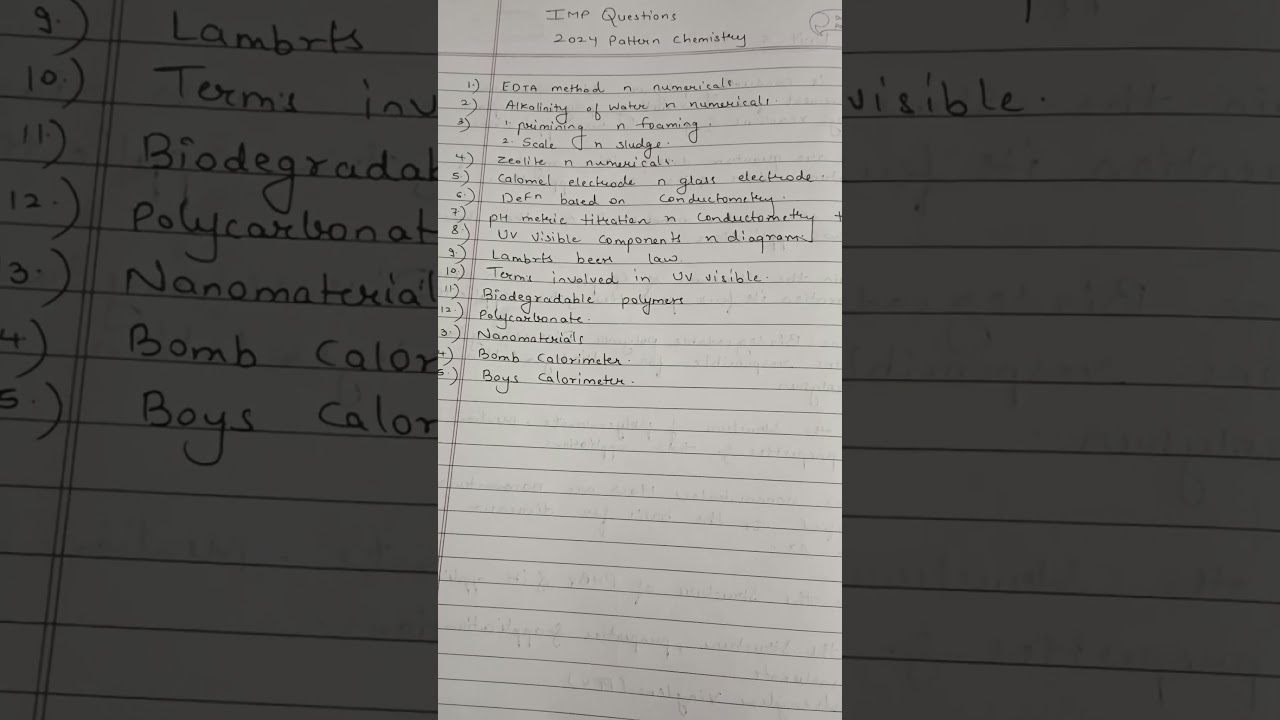 IMP Questions
2024 Pattern Chemistry
1.) EDTA method n numericals
2) Alkalinity of water n numericals.
3) 1. primining n foaming.
2. Scale n sludge.
4) zeolite n numericals.
5) calomel electrode n glass electrode.
6.) Defn based on conductometry.
7) pH metric titration n conductometry +
8.) UV visible components n diagram
9.) Lambrts beers law.
10.) Terms involved in UV visible.
11) Biodegradable polymers
12.) Polycarbonate.
3.) Nanomaterials
4) Bomb calorimeter.
5.) Boys calorimeter.
9.) Lambrts
10.) Terms inv visible.
11) Biodegradab
12.) Polycarbonat
3.) Nanomaterial
4) Bomb Calor
5.) Boys Calor